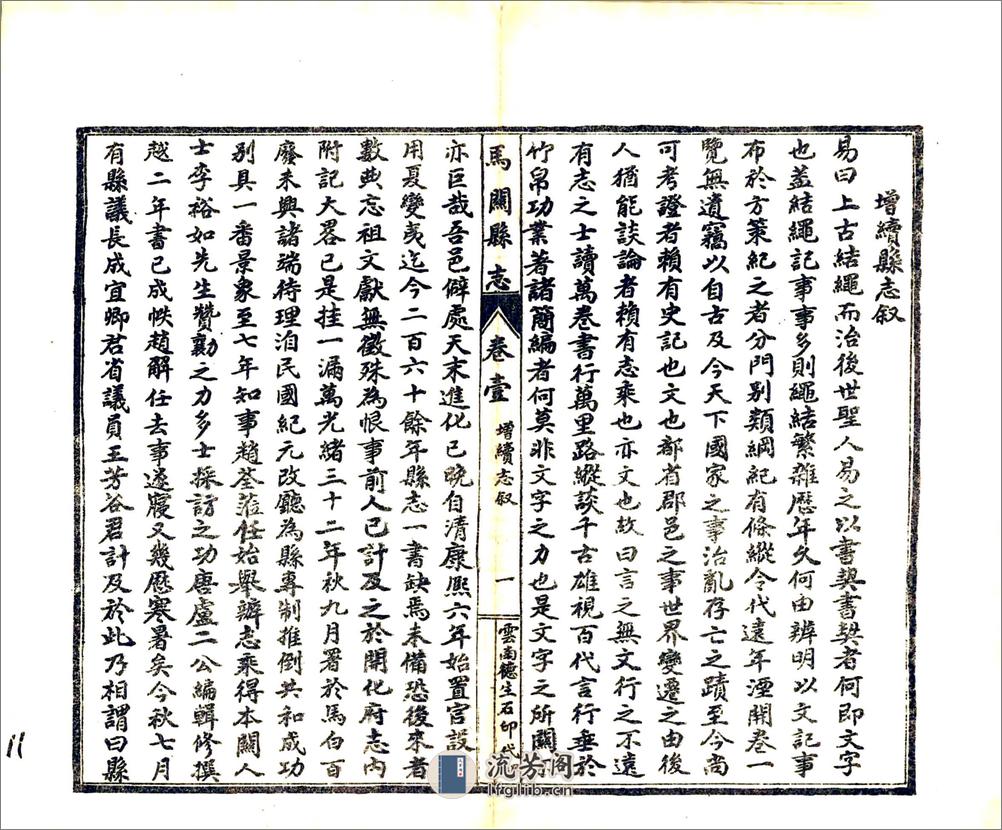 增續縣志叙
易曰上古結繩而治後世聖人易之以書契書契者何即文字
也蓋結繩記事事多則繩結繁雜歷年久何由辨明以文記事
布於方策紀之者分門别類綱紀有條縱令代遠年湮開卷一
覽無遺竊以自古及今天下國家之事治亂存亡之蹟至今尚
可考證者賴有史記也文也都省郡邑之事世界變遷之由後
人猶能談論者賴有志乘也亦文也故曰言之無文行之不遠
有志之士讀萬卷書行萬里路縱談千古雄視百代言行垂於
竹帛功業著諸簡編者何莫非文字之力也是文字之所關
馬關縣志
卷壹
增續志叙
一
雲南德生石印代
亦巨哉吾邑僻處天末進化已晚自清康熙六年始置官設
用夏變夷迄今二百六十餘年縣志一書缺焉未備恐後來者
數典忘祖文獻無徵殊為恨事前人已計及之於開化府志内
附記大畧已是挂一漏萬光緒三十二年秋九月署於馬白百
廢未興諸端待理洎民國紀元改廳為縣專制推倒共和成功
别具一番景象至七年知事趙荃蒞任始舉辦志乘得本關人
士李裕如先生贊勷之力多士採訪之功唐盧二公編輯修撰
越二年書已成帙趙解任去事遂寢又幾歷寒暑矣今秋七月
有縣議長成宜卿君省議員王芳谷君計及於此乃相謂曰縣
11
流芳阁
lfglib.cn